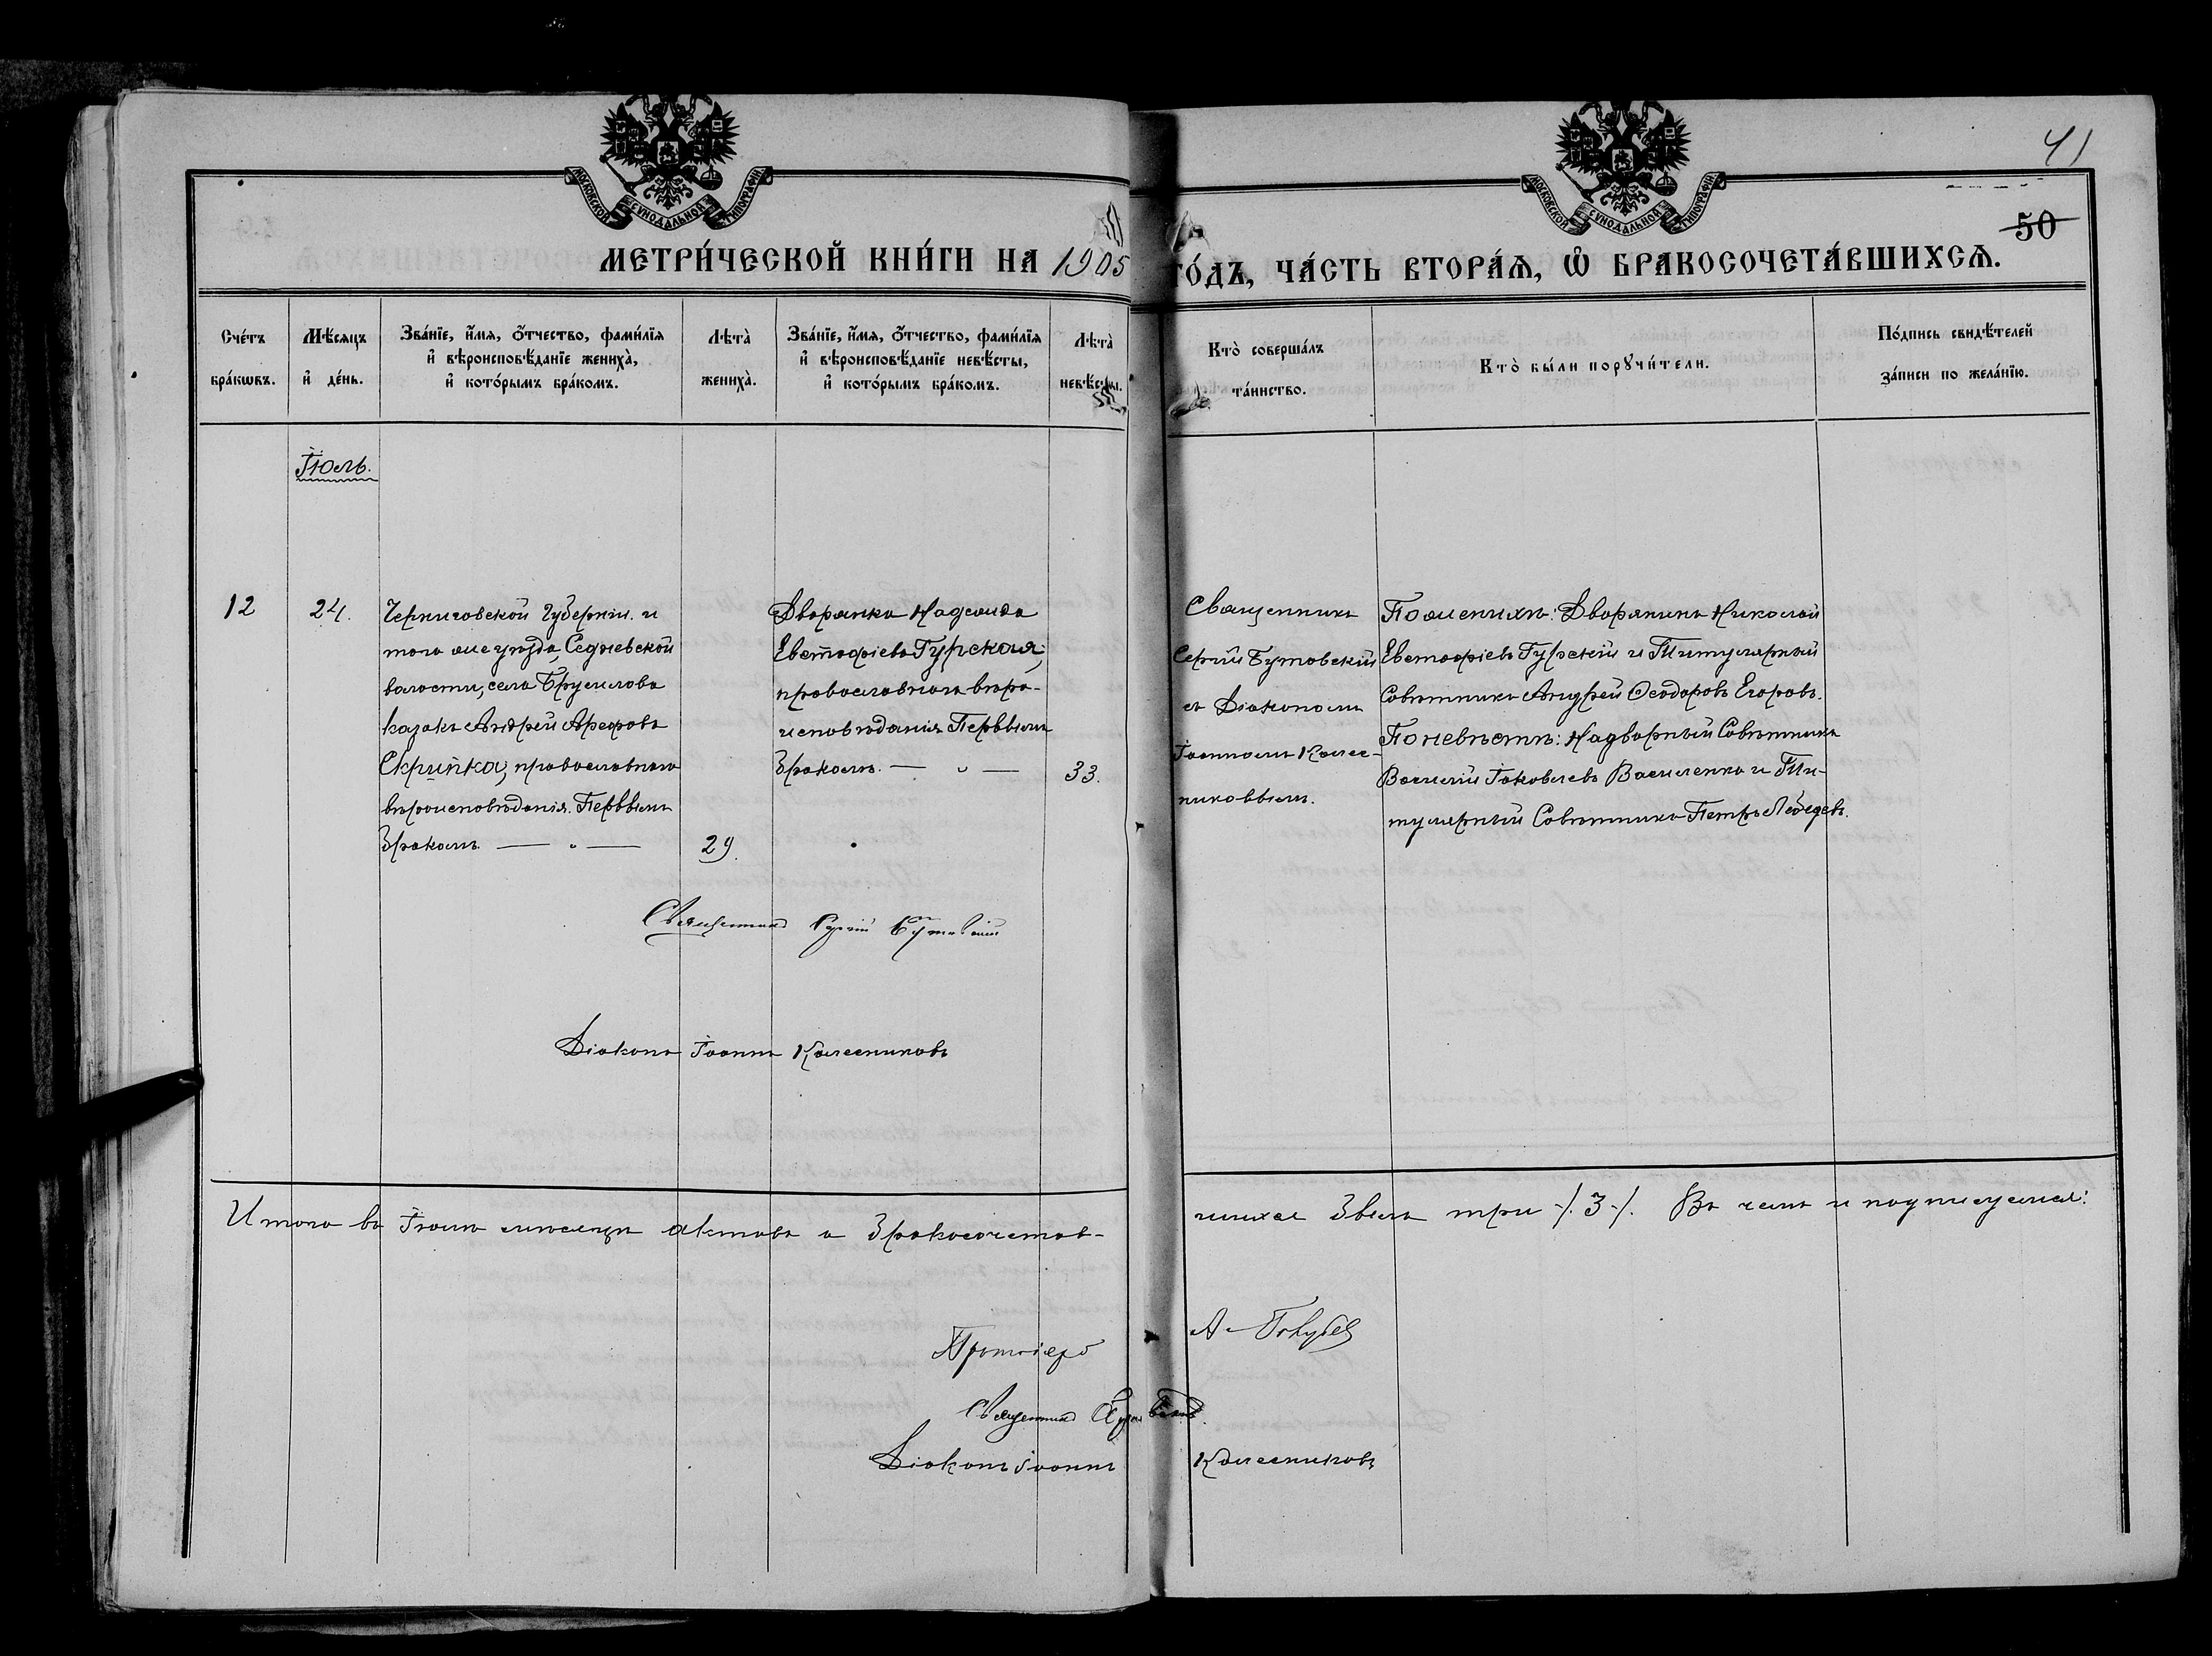 41
50
МОСКОВСКОЙ СѴНОДАЛЬНОЙ ТИПОГРАФІИ
МОСКОВСКОЙ СѴНОДАЛЬНОЙ ТИПОГРАФІИ
МЕТРИ́ЧЕСКОЙ КНИ́ГИ НА 1905 ГО́ДЪ, ЧА́СТЬ ВТОРА́Ѧ, Ѽ БРАКОСОЧЕТА́ВШИХСѦ.
Сче́тъ
бра́кѡвъ.
Мѣ́сяцъ
и҆ де́нь.
Зва́нїе, и҆́мя, ѻ҆́тчество, фами́лїя
и҆ вѣроисповѣ́данїе жениха̀,
и҆ кото́рымъ бра́комъ.
Лѣта̀
жениха̀.
Зва́нїе, и҆́мя, ѻ҆́тчество, фами́лїя
и҆ вѣроисповѣ́данїе невѣ́сты,
и҆ кото́рымъ бра́комъ.
Лѣта̀
невѣ́сты.
Кто̀ соверша́лъ
та́инство.
Кто̀ бы́ли порꙋчи́тели.
По́дпись свидѣ́телей
за́писи по жела́нїю.
Іюль.
12
24.
Черниговской губерніи и
того же уѣзда, Седневской
волости, села Брусилова
казакъ Андрей Арефовъ
Скрипка, православнаго
вѣроисповѣданія. Первымъ
бракомъ — „ —
29.
Дворянка Надежда
Евстафіева Гурская,
православнаго вѣро-
исповѣданія. Первымъ
бракомъ. — „ —
33.
Священникъ
Сергій Бутовскій
съ Діакономъ
Іоанномъ Колес-
никовымъ.
По женихѣ: Дворянинъ Николай
Евстафіевъ Гурскій и Титулярный
Совѣтникъ Андрей Ѳеодоровъ Егоровъ.
По невѣстѣ: Надворный Совѣтникъ
Василій Іаковлевъ Василенко и Ти-
тулярный Совѣтникъ Петръ Лебедевъ.
Священникъ Сергій Бутовскій
Діаконъ Іоаннъ Колесниковъ
Итого въ Іюлѣ мѣсяцѣ актовъ о бракосочетав-
шихся было три ./. 3 ./. Въ чемъ и подписуемся:
Протоіерей А. Голубев
Священникъ
Діаконъ Іоаннъ Колесниковъ